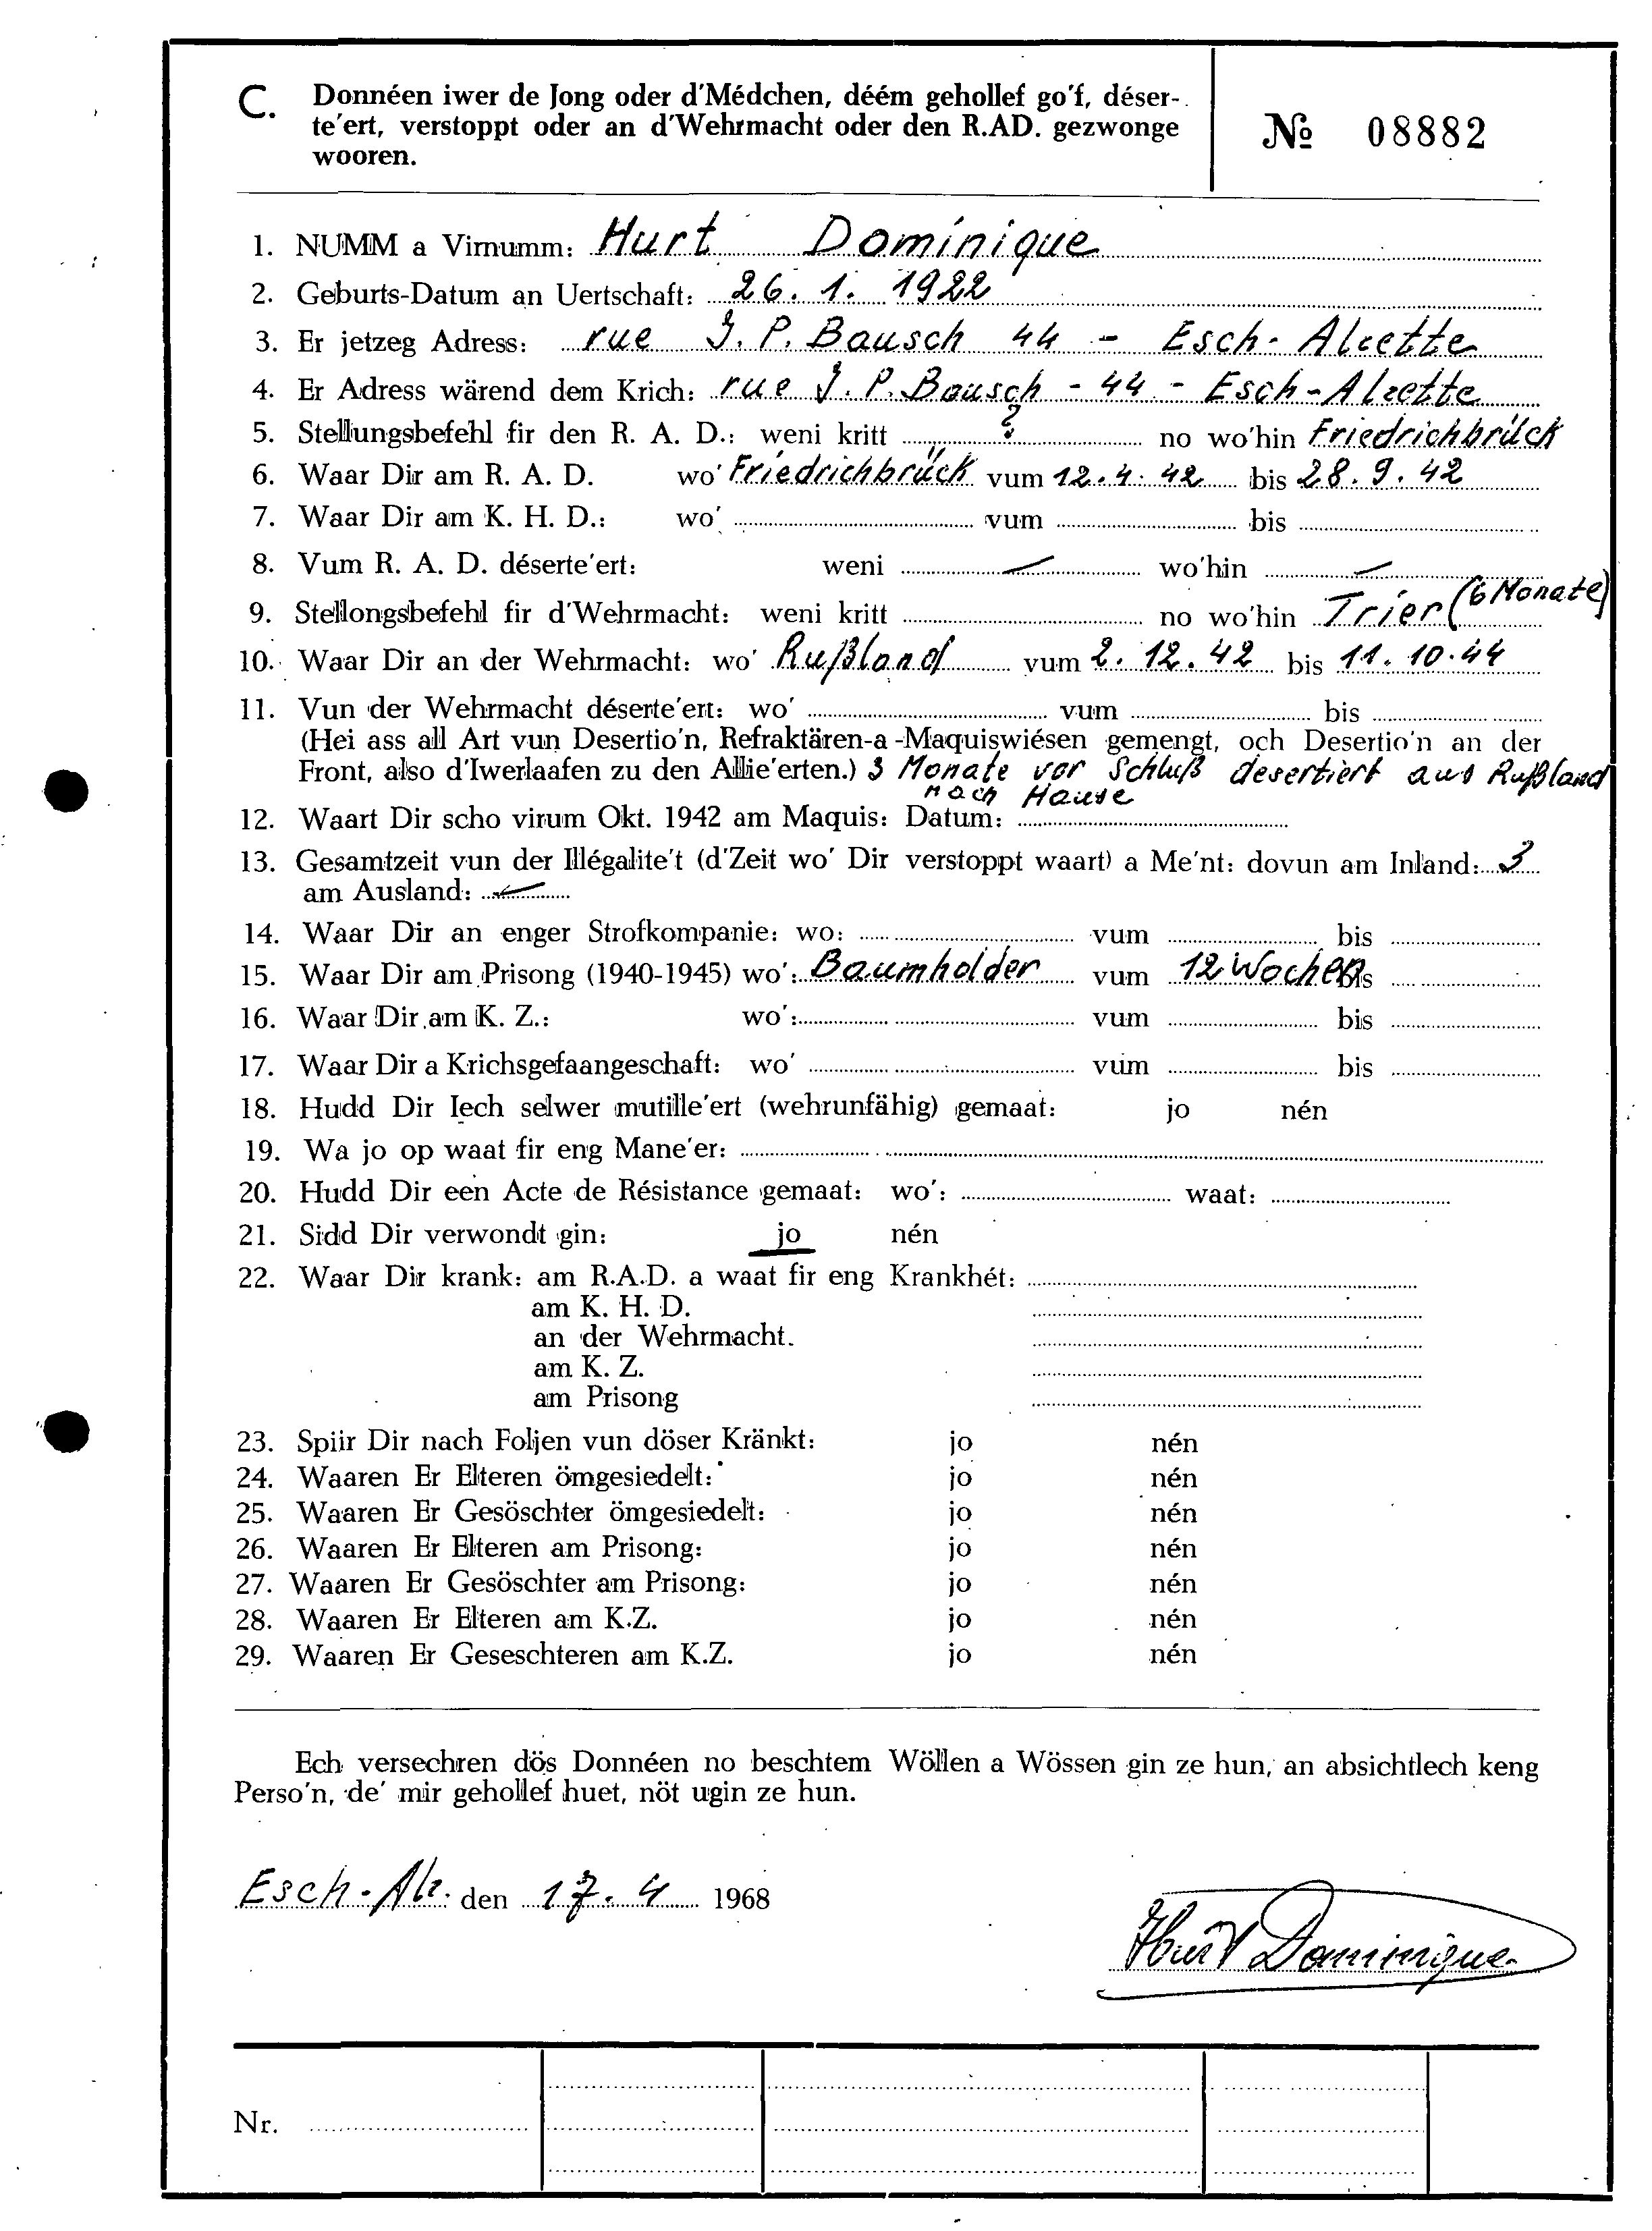 C. Donnéen iwer de Jong oder d'Médchen, déém gehollef go'f, déser-
te'ert, verstoppt oder an d'Wehrmacht oder den R.AD. gezwonge
wooren.
№ 08882
1. NUMM a Virnumm: Hurt Dominique
2. Geburts-Datum an Uertschaft: 26. 1. 1922
3. Er jetzeg Adress: rue J. P. Bausch 44 - Esch-Alzette
4. Er Adress wärend dem Krich: rue J. P. Bausch - 44 - Esch-Alzette
5. Stellungsbefehl fir den R. A. D.: weni kritt ? no wo'hin Friedrichbrück
6. Waar Dir am R. A. D. wo' Friedrichbrück vum 12. 4. 42 bis 28. 9. 42
7. Waar Dir am K. H. D.: wo' vum bis
8. Vum R. A. D. déserte'ert: weni — wo'hin —
9. Stellongsbefehl fir d'Wehrmacht: weni kritt no wo'hin Trier (6 Monate)
10. Waar Dir an der Wehrmacht: wo' Rußland vum 2. 12. 42 bis 11. 10. 44
11. Vun der Wehrmacht déserte'ert: wo' vum bis
(Hei ass all Art vun Desertio'n, Refraktären-a-Maquiswiésen gemengt, och Desertio'n an der
Front, also d'Iwerlaafen zu den Allie'erten.) 3 Monate vor Schluß desertiert aus Rußland
nach Hause
12. Waart Dir scho virum Okt. 1942 am Maquis: Datum:
13. Gesamtzeit vun der Illégalite't (d'Zeit wo' Dir verstoppt waart) a Me'nt: dovun am Inland: 3
am Ausland: —
14. Waar Dir an enger Strofkompanie: wo: vum bis
15. Waar Dir am Prisong (1940-1945) wo': Baumholder vum 12 Wochen bis
16. Waar Dir am K. Z.: wo': vum bis
17. Waar Dir a Krichsgefaangeschaft: wo' vum bis
18. Hudd Dir Iech selwer mutille'ert (wehrunfähig) gemaat: jo nén
19. Wa jo op waat fir eng Mane'er:
20. Hudd Dir een Acte de Résistance gemaat: wo': waat:
21. Sidd Dir verwondt gin: jo nén
22. Waar Dir krank: am R.A.D. a waat fir eng Krankhét:
am K. H. D.
an der Wehrmacht.
am K. Z.
am Prisong
23. Spiir Dir nach Foljen vun döser Kränkt: jo nén
24. Waaren Er Elteren ömgesiedelt: jo nén
25. Waaren Er Gesöschter ömgesiedelt: jo nén
26. Waaren Er Elteren am Prisong: jo nén
27. Waaren Er Gesöschter am Prisong: jo nén
28. Waaren Er Elteren am K.Z. jo nén
29. Waaren Er Geseschteren am K.Z. jo nén
Ech versechren dös Donnéen no beschtem Wöllen a Wössen gin ze hun, an absichtlech keng
Perso'n, de' mir gehollef huet, nöt ugin ze hun.
Esch-Alz. den 17. 4 1968
Hurt Dominique
Nr.